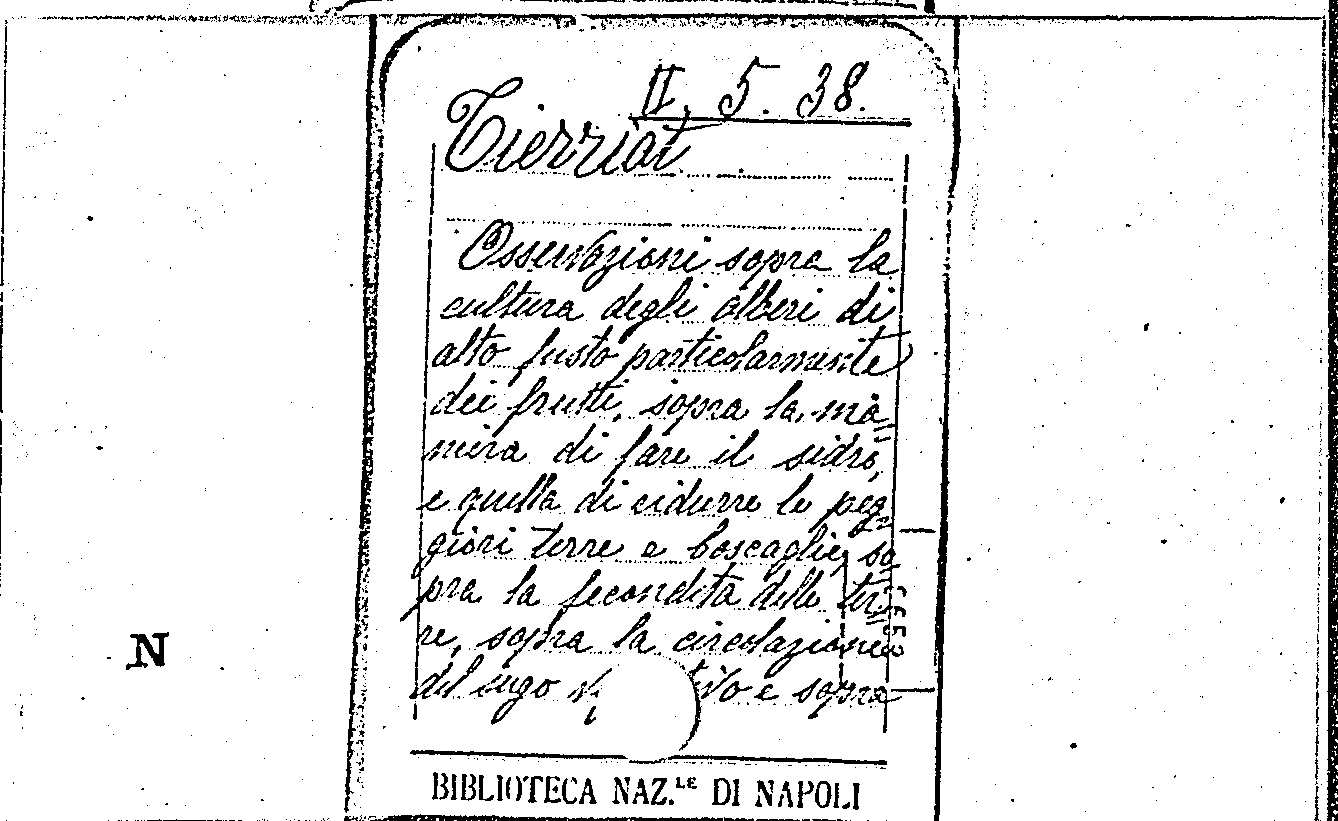 II. 5. 38.
Tierriat
Osservazioni sopra la
cultura degli alberi di
alto fusto particolarmente
dei frutti, sopra la ma=
niera di fare il sidro,
e quella di ridurre le peg=
giori terre a boscaglie, so=
pra la fecondità delle ter=
re, sopra la circolazione
del sugo e sopra
N
BIBLIOTECA NAZ.LE DI NAPOLI